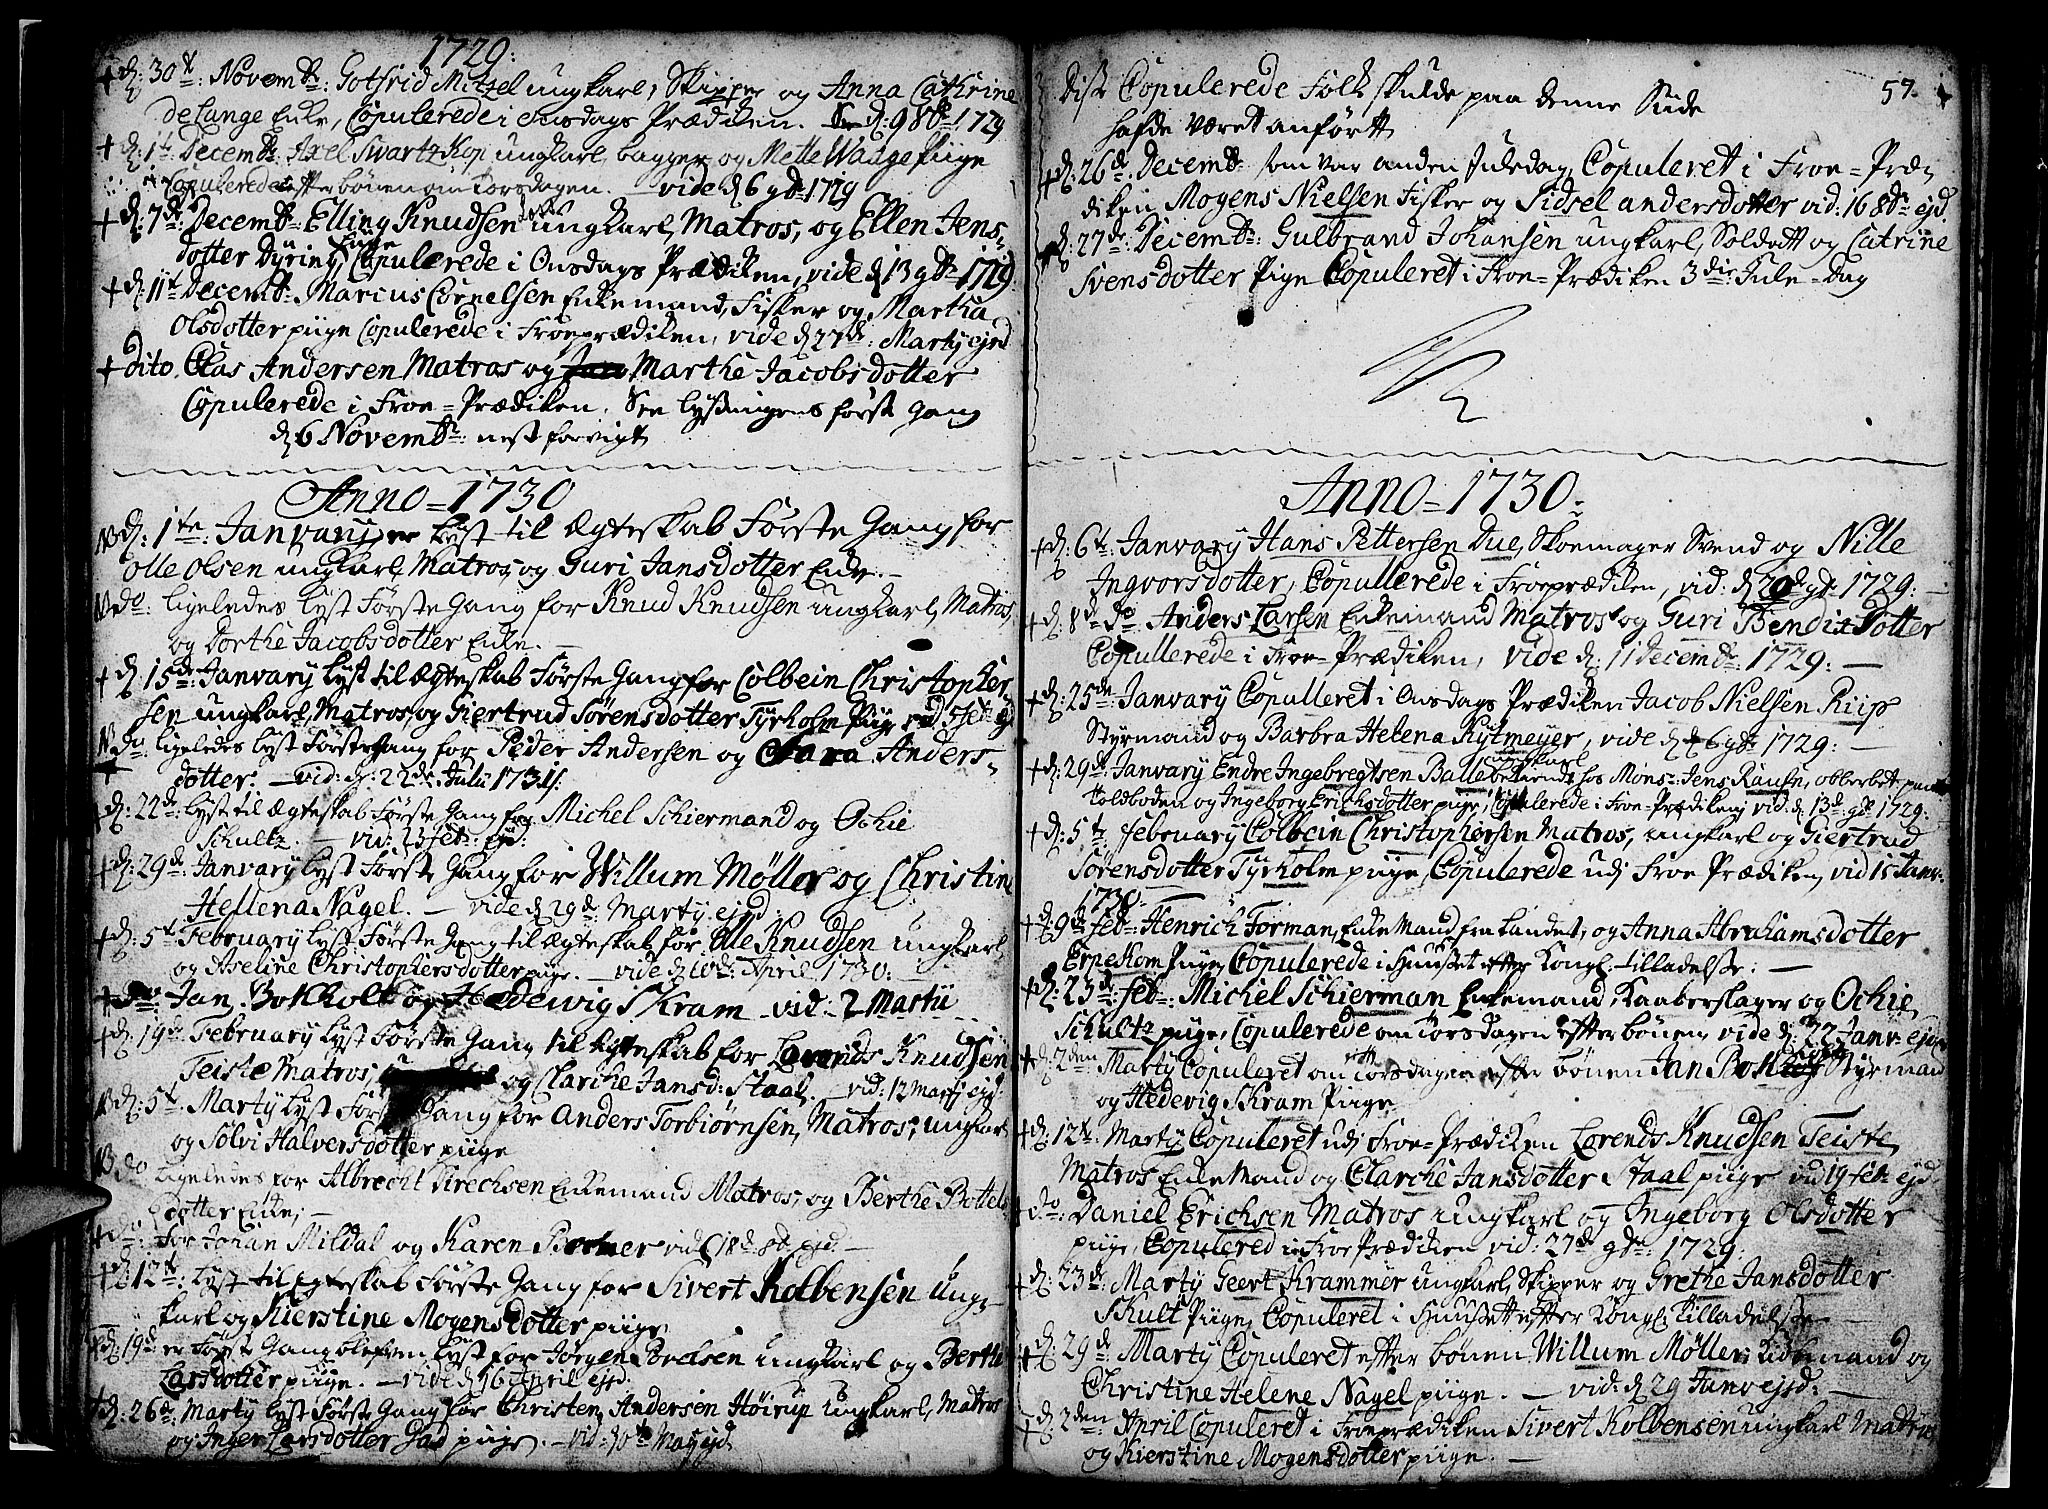 1729:
+ d: 30te: Novembr: Gotfrid Mitzel ungkarl, Skipper og Anna Cathrine
de Lange Enke, Copulerede i Onsdags Prædiken. d: 9 8br 1729
+ d: 1te Decembr: Axel Swartzkop ungkarl, bagger og Mette Waage Piige
Copulerede efter bønen om Torsdagen. – vide d 6 9br 1729
+ d: 7de: Decembr: Elling Knudsen ungkarl, Matros, og Ellen Jens-
dotter Dyring Piige Copulerede i Onsdags Prædiken, vide d 13 9br 1729
+ d: 11te Decembr: Marcus Cornelsen Enkemand, Fisker og Martha
Olsdotter piige Copulerede i Froeprædiken, vide d 27de: Marty ejsd
+ Dito. Clas Andersen Matros og Marthe Jacobsdotter
Copulerede i Froe-Prædiken. See lysningens første Gang
d 6 Novembr: nest forvigt
Anno = 1730
NB d: 1te: Janvary er Lyst til Ægteskab Første Gang for
Olle Olsen ungkarl, Matros og Guri Jansdotter Enke. –
NB do: ligeledes lyst Første Gang for Knud Knudsen ungkarl, Matros,
og Dorthe Jacobsdotter Enke. –
+ d: 15de: Janvary lyst til Ægteskab Første Gang for Colbein Christopher-
sen ungkarl, Matros, og Giertrud Sørensdotter Tyrholm Piige vid 5 feb: ej
NB do ligeledes lyst Første Gang for Peder Andersen og Clara Anders-
+ dotter. – vid: d: 22de: Julii 1731.
+ d: 22de: lyst til ægteskab Første Gang for Michel Schiermand og Ochie
Schultz. – vid: 23 feb: ejd:
+ d: 29de: Janvary lyst Første Gang for Willum Møller og Christin
Hellena Nagel. – vide d 29de: Marty ejsd
+ d: 5te February lyst Første Gang til ægteskab for Olle Knudsen ungkarl
og Aseline Christophersdotter piige. – vide d 10de: April 1730:
+ do Jan Bokholt og Hedewig Skram – vid: 2 Martii
+ d: 19de February lyst Første Gang til Ægteskab for Lorends Knudsen
Teiste Matros, og Clarche Jansd: Staal, – vid: 12 Marty ejsd
NB d: 5te. Marty lyst Første Gang for Anders Torbiørnsen, Matros, ungkarl
og Sølvi Halversdotter piige
NB do Ligeledes for Albrecht Direchsen Enkemand Matros, og Berthe Bottels
Dotter Enke, –
+ do: for Johan Mildal og Karen vid d 18de: 8br ejd. –
+ d: 12te: Lyst til Egteskab Første Gang for Sivert Kolbensen Ung-
karl og Kierstine Mogensdotter piige,
+ d: 19de er Første Gang blefven lyst for Jørgen ungkarl og Berthe
Larsdotter piige. – vide d 16 April ejsd.
+ d: 26de: Marty lyst Første Gang for Christen Andersen Høirup ungkarl, Matros
og Inger Larsdotter Gad piige. – vid: 30te May ejsd
57.
Disse Copulerede Folk skulde paa denne Side
hafde været anført
+ d: 26de: Decembr: som var anden Juledag, Copuleret i Froe-Præ-
diken Mogens Nielsen Fisker og Sidsel andersdotter vid: 16 8br: ejd.
+ d: 27de: Decembr: Gulbrand Johansen ungkarl, Soldatt og Catrine
Svensdotter Piige Copuleret i Froe-Prædiken 3die: Jule-Dag
Anno = 1730:
+ d: 6te: Janvary Hans Pettersen Due, Skoemager Svend og Nille
Ingvorsdotter, Copullerede i Froeprædiken, vid: d 20de 9br 1729: –
+ d: 8de do Anders Larsen Enkemand Matros og Guri Bendixdotter
Copullerede i Froe-Prædiken, vide d: 11 Decembr: 1729: –
+ d: 25de Janvary Copulleret i Onsdags Prædiken Jacob Nielsen Riip
Styrmand og Barbra Helena Rytmeyer, vide d 6 9br 1729: –
+ d: 29de Janvary Endre Ingebregtsen Balle ungkarl betiendt hos Mons: Jens Raufn, ober betient paa
Toldboden og Ingeborg Erichsdotter piige, Copulerede i Froe-Prædiken, vid: d: 13de: 9br 1729:
+ d: 5te February Colbein Christophersen Matros, ungkarl og Giertrud
Sørensdotter Tyrholm piige, Copulerede udi Froe Prædiken, vid 15 Janv:
1730:
+ d: 9de feb: Henrich Forman, Enke Mand fra Landet, og Anna Abrahamsdotter
Erpekom Piige, Copulerede i Huuset efter Kongl: tilladelse: –
+ d: 23de: feb: Michel Schierman Enkemand, Kaaberslager og Ochie
Schultz piige, Copulerede om Torsdagen efter bønen, vide d: 22 Janv: ejd
+ d: 2den Marty Copuleret om Torsdagen efter bønen Jan Styrmand
og Hedevig Skram Piige
+ d: 12te: Marty Copuleret udi Froe-Prædiken Lorends Knudsen Teiste
Matros Enke Mand og Clarche Jansdotter Staal piige vid 19 feb: ejd
+ do: Daniel Erichsen Matros ungkarl og Ingeborg Olsdotter
piige, Copulered i Froe Prædiken vid: 27de 9br: 1729:
+ d: 23de: Marty Geert Krammer ungkarl, Skipper og Grethe Jansdotter
Skult Piige, Copuleret i Huuset efter Kongl: Tilladelse –
+ d: 29de Marty Copuleret efter bønen Willum Møller Enkemand og
Christine Helene Nagel piige. – vid: d 29 Janv ejsd: –
+ d: 2den April Copuleret i Froeprædiken Sivert Kolbensen ungkarl Matros
og Kierstine Mogensdotter piige. –